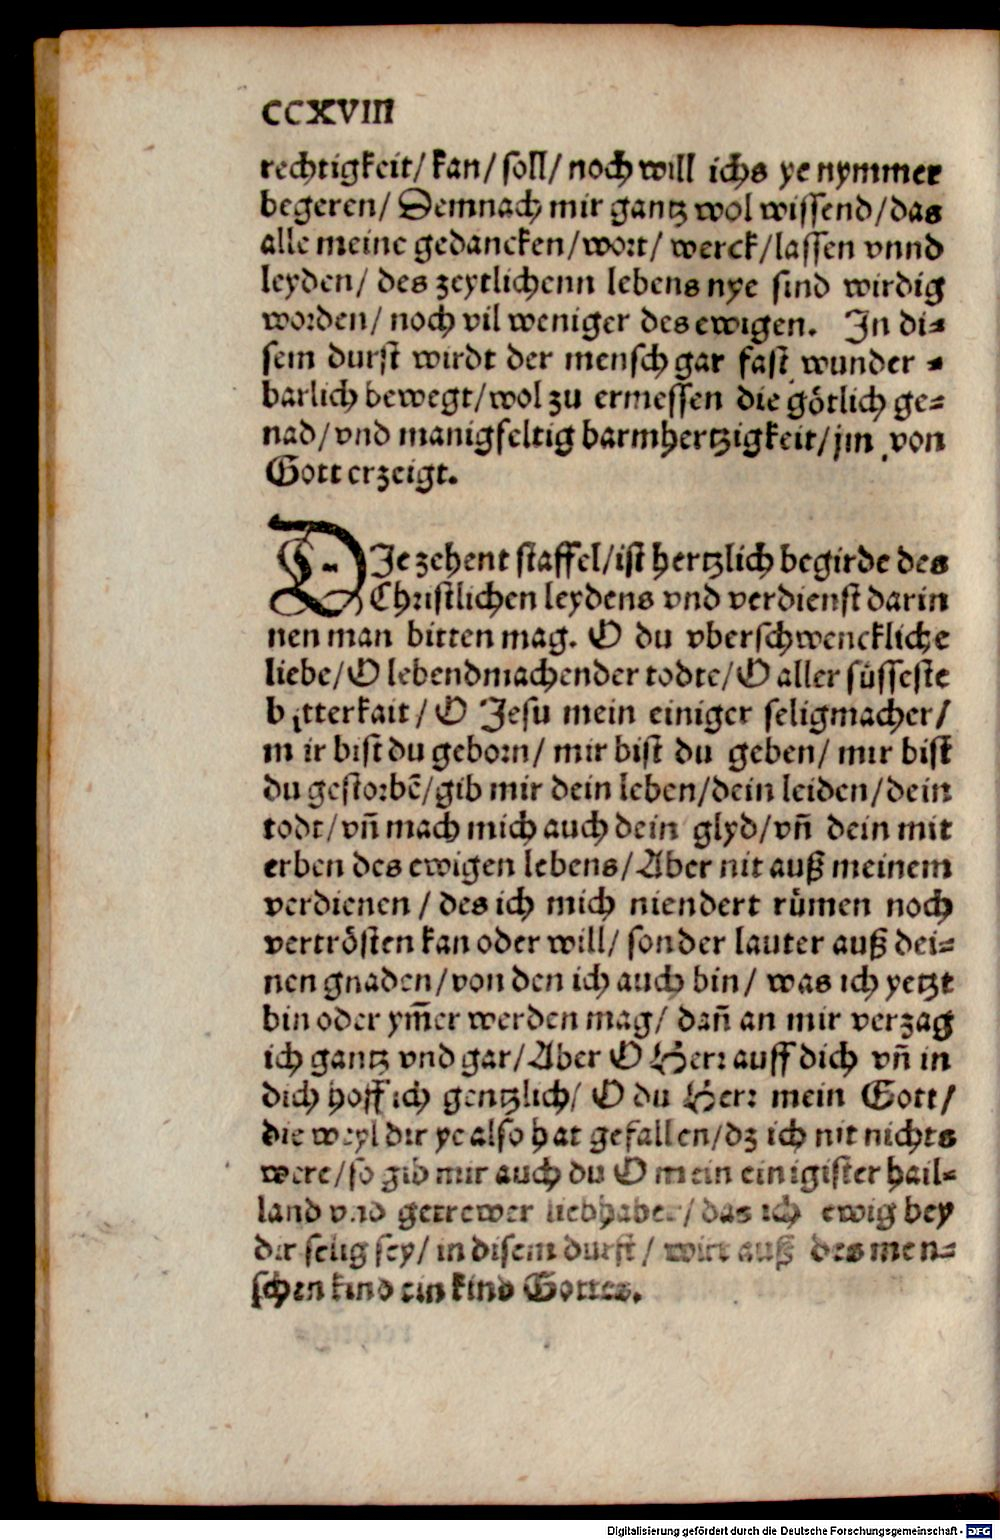 CCXVIII
rechtigkeit/ kan/ soll/ noch will ichs ye nymmer
begeren/ Demnach mir gantz wol wissend/das
alle meine gedancken/wort/ werck/lassen vnnd
leyden/ des zeytlichenn lebens nye sind wirdig
worden/ noch vil weniger des ewigen. In di⸗
sem durst wirdt der mensch gar fast wunder ⸗
barlich bewegt/wol zu ermessen die götlich ge⸗
nad/vnd manigfeltig barmhertzigkeit/jm von
Gott erzeigt.
DIe zehent staffel/ist hertzlich begirde des
Christlichen leydens vnd verdienst darin
nen man bitten mag. O du vberschwenckliche
liebe/O lebendmachender todte/O aller süsseste
bitterkait/ O Jesu mein einiger seligmacher/
m ir bist du geborn/ mir bist du geben/ mir bist
du gestorbē/gib mir dein leben/dein leiden/dein
todt/vñ mach mich auch dein glyd/vñ dein mit
erben des ewigen lebens/Aber nit auß meinem
verdienen / des ich mich niendert rümen noch
vertrösten kan oder will/ sonder lauter auß dei⸗
nen gnaden/von den ich auch bin/ was ich yetzt
bin oder ym̃er werden mag/ dañ an mir verzag
ich gantz vnd gar/Aber O Herr auff dich vñ in
dich hoff ich gentzlich/ O du Herr mein Gott/
die weyl dir ye also hat gefallen/dz ich nit nichts
were/so gib mir auch du O mein einigister hail⸗
land vnd getrewer liebhaber/das ich ewig bey
dir selig sey/ in disem durst/ wirt auß des men⸗
schen kind ein kind Gottes.
Digitalisierung gefördert durch die Deutsche Forschungsgemeinschaft - DFG